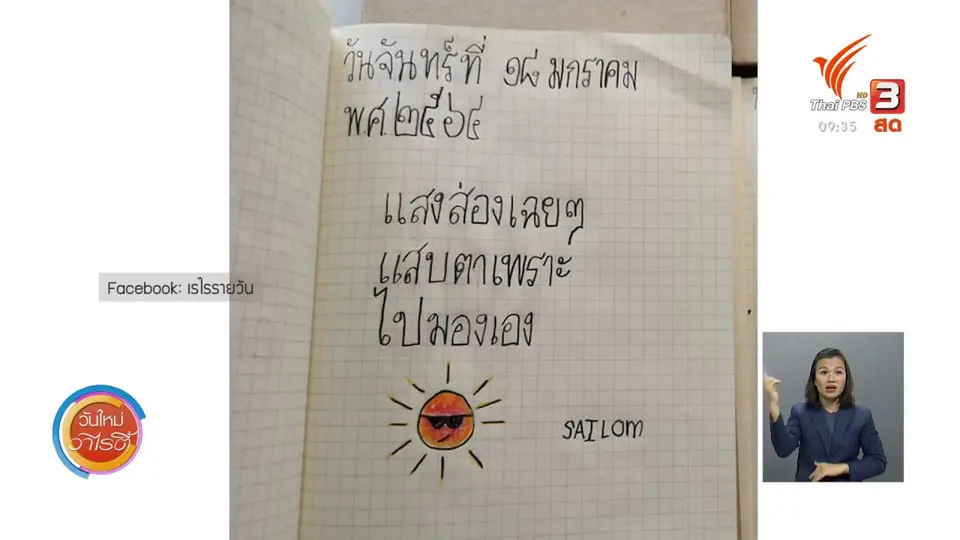 วันจันทร์ที่ ๑๘ มกราคม
พ.ศ. ๒๕๖๔
แสงส่องเฉยๆ
แสบตาเพราะ
ไปมองเอง
SAILOM
Facebook: เรไรรายวัน
วันใหม่
วาไรตี้
Thai PBS
HD
3
09:35
สด